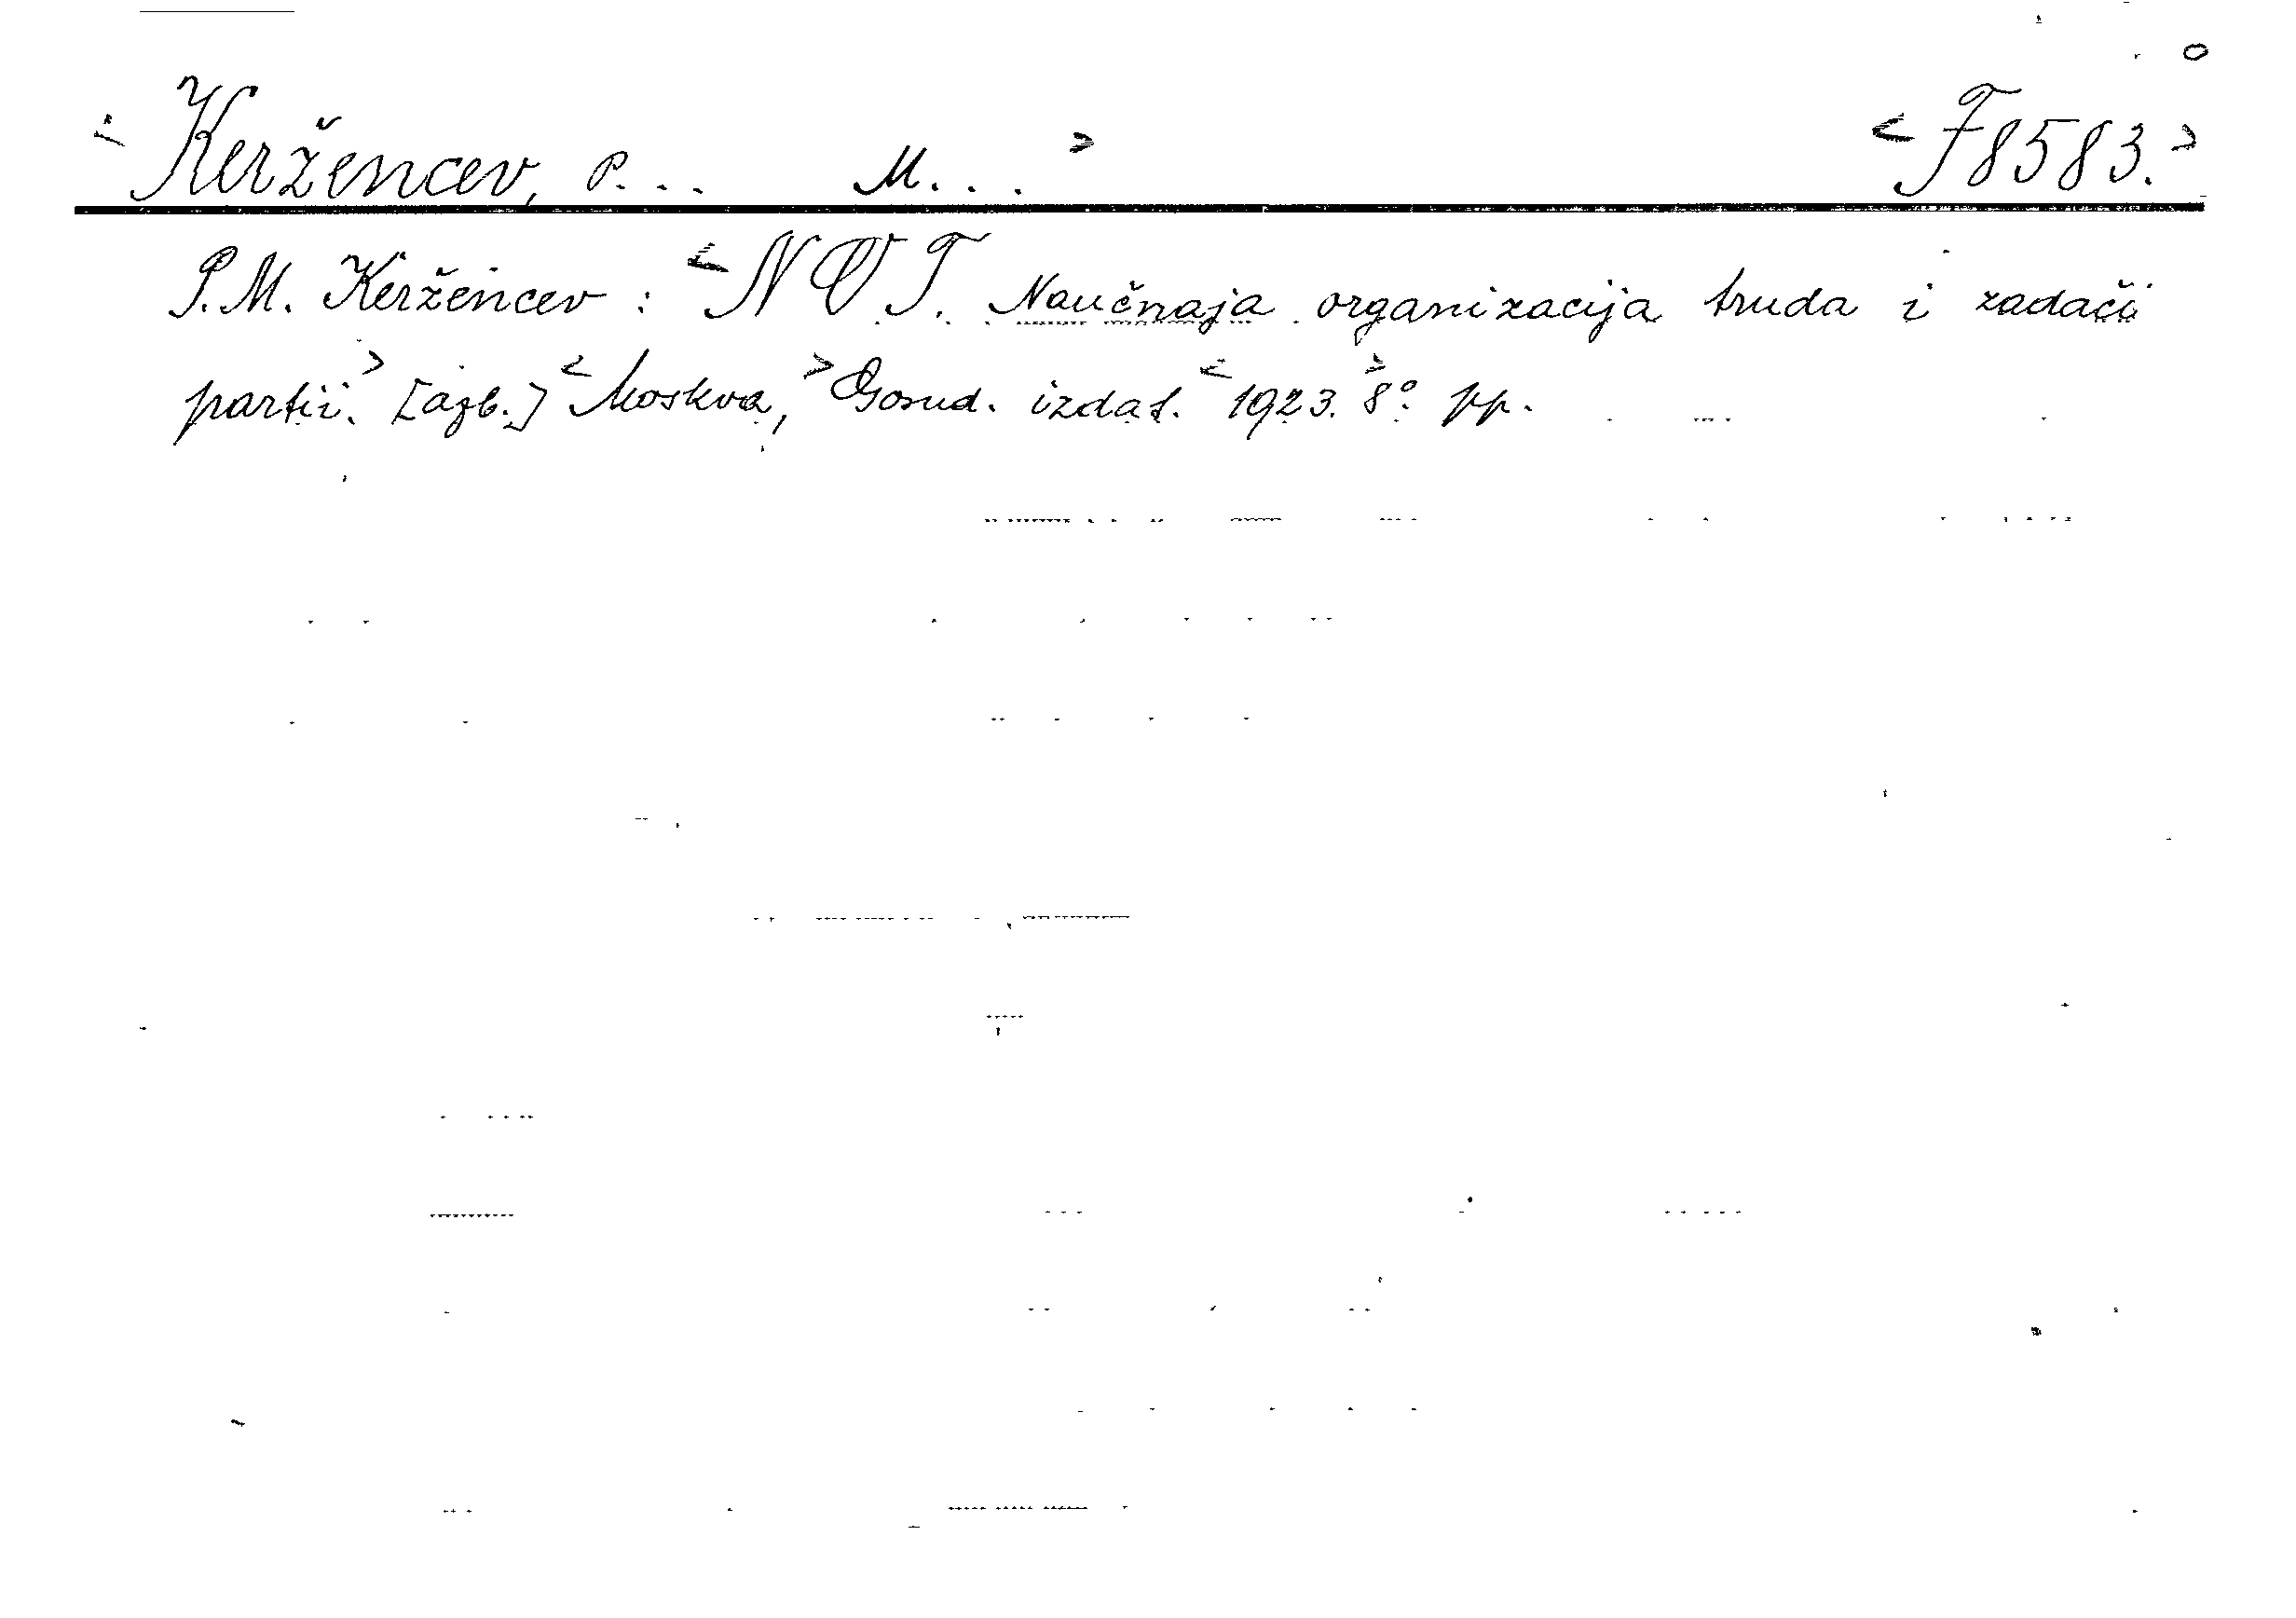 <Keržencev, P... M...> <F8583.>
P.M. Keržencev: <NOT. Naučnaja organizacija truda i zadači
partii.> [azb.] <Moskva,> Gosud. izdat. <1923.> 8° pp.